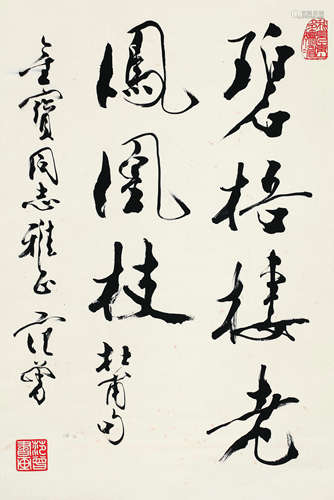 碧梧棲老
鳳凰枝
杜甫句
金寶同志雅正
范曾